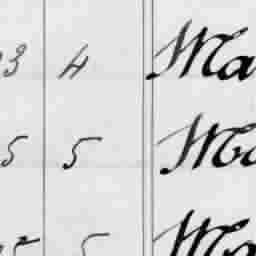 3 4 Ma
5 5 Mo
5 5 Ma